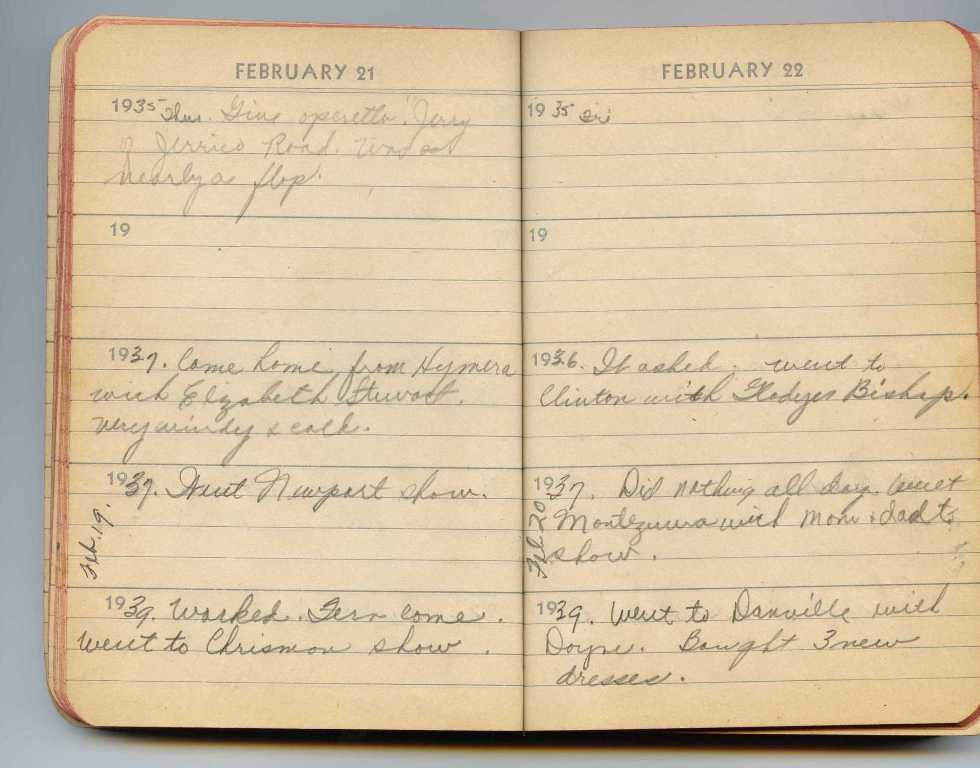 FEBRUARY 21
1935 Thur. Give operetta "Jerry
of Jerrico Road. Was
nearly a flop.
19
1937. Come home from Hymera
with Elizabeth Stewart.
very windy & cold.
1937. Went Newport show.
Feb. 19.
1939. Worked. Fern come.
Went to Chrisman show.
FEBRUARY 22
1935 Fri
19
1936. went to
Clinton with Gladyes Bishop.
1937. Did nothing all day. Went
Montezuma with Mom & dad to
show.
Feb 20
1939. Went to Danville with
Doyne. Bought 3 new
dresses.